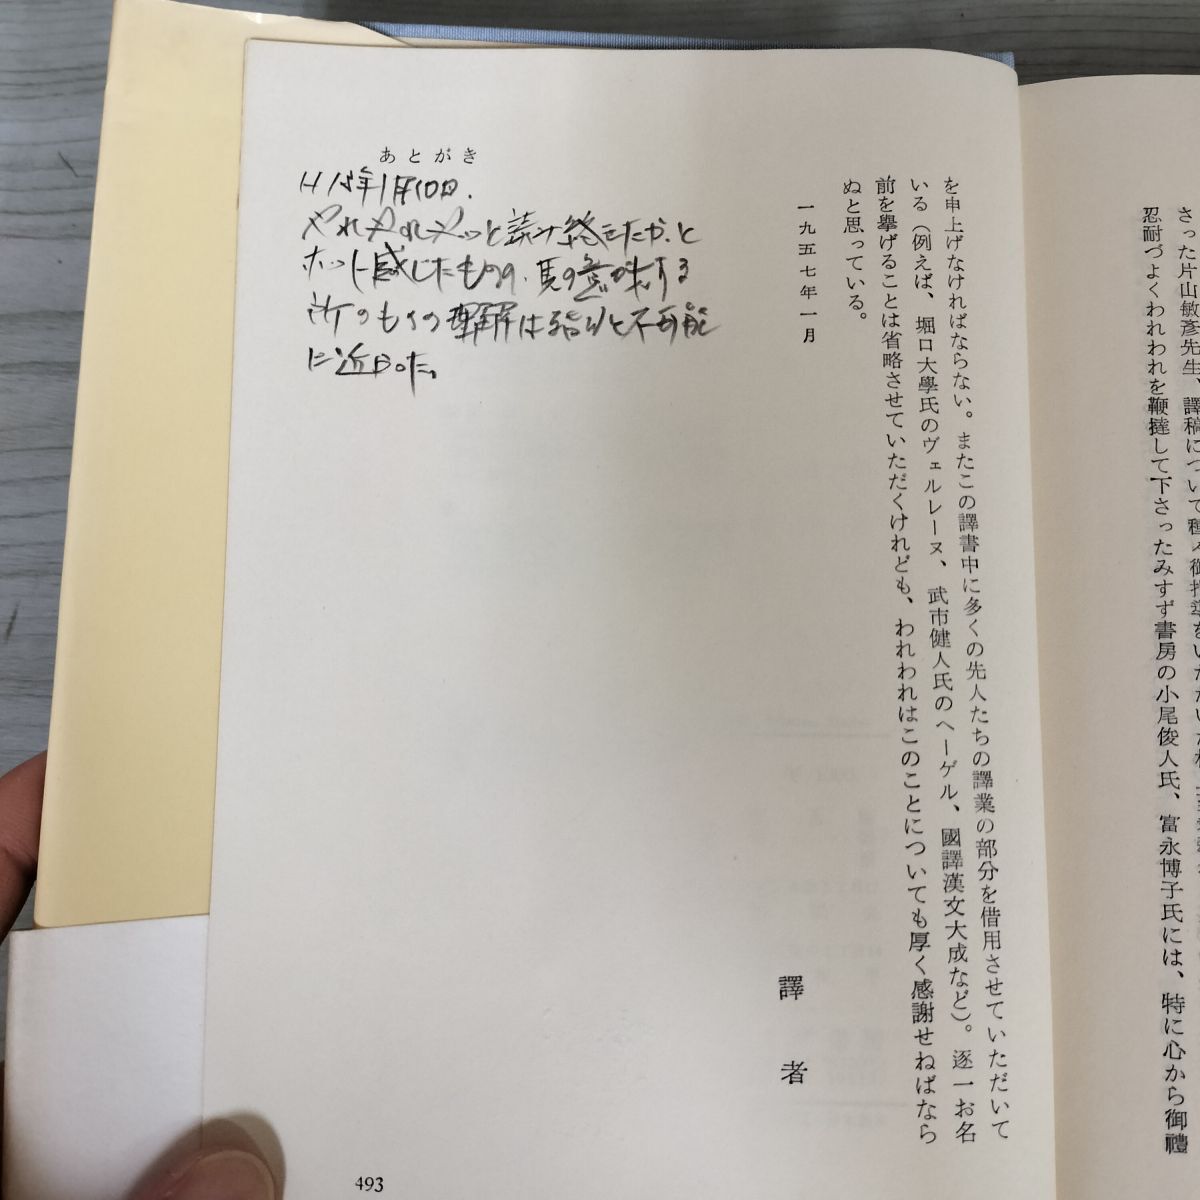 さった片山敏彦先生、譯稿について種々御指導をいただいた
忍耐づよくわれわれを鞭撻して下さったみすず書房の小尾俊人氏、富永博子氏には、特に心から御禮
を申上げなければならない。またこの譯書中に多くの先人たちの譯業の部分を借用させていただいて
いる（例えば、堀口大學氏のヴェルレーヌ、武市健人氏のヘーゲル、國譯漢文大成など）。逐一お名
前を擧げることは省略させていただくけれども、われわれはこのことについても厚く感謝せねばなら
ぬと思っている。
一九五七年一月
譯者
あとがき
H15年1月10日.
やれやれやっと読み終えたかと
ホット感じたものの、真の意味する
所のものの理解は殆んど不可能
に近かった。
493